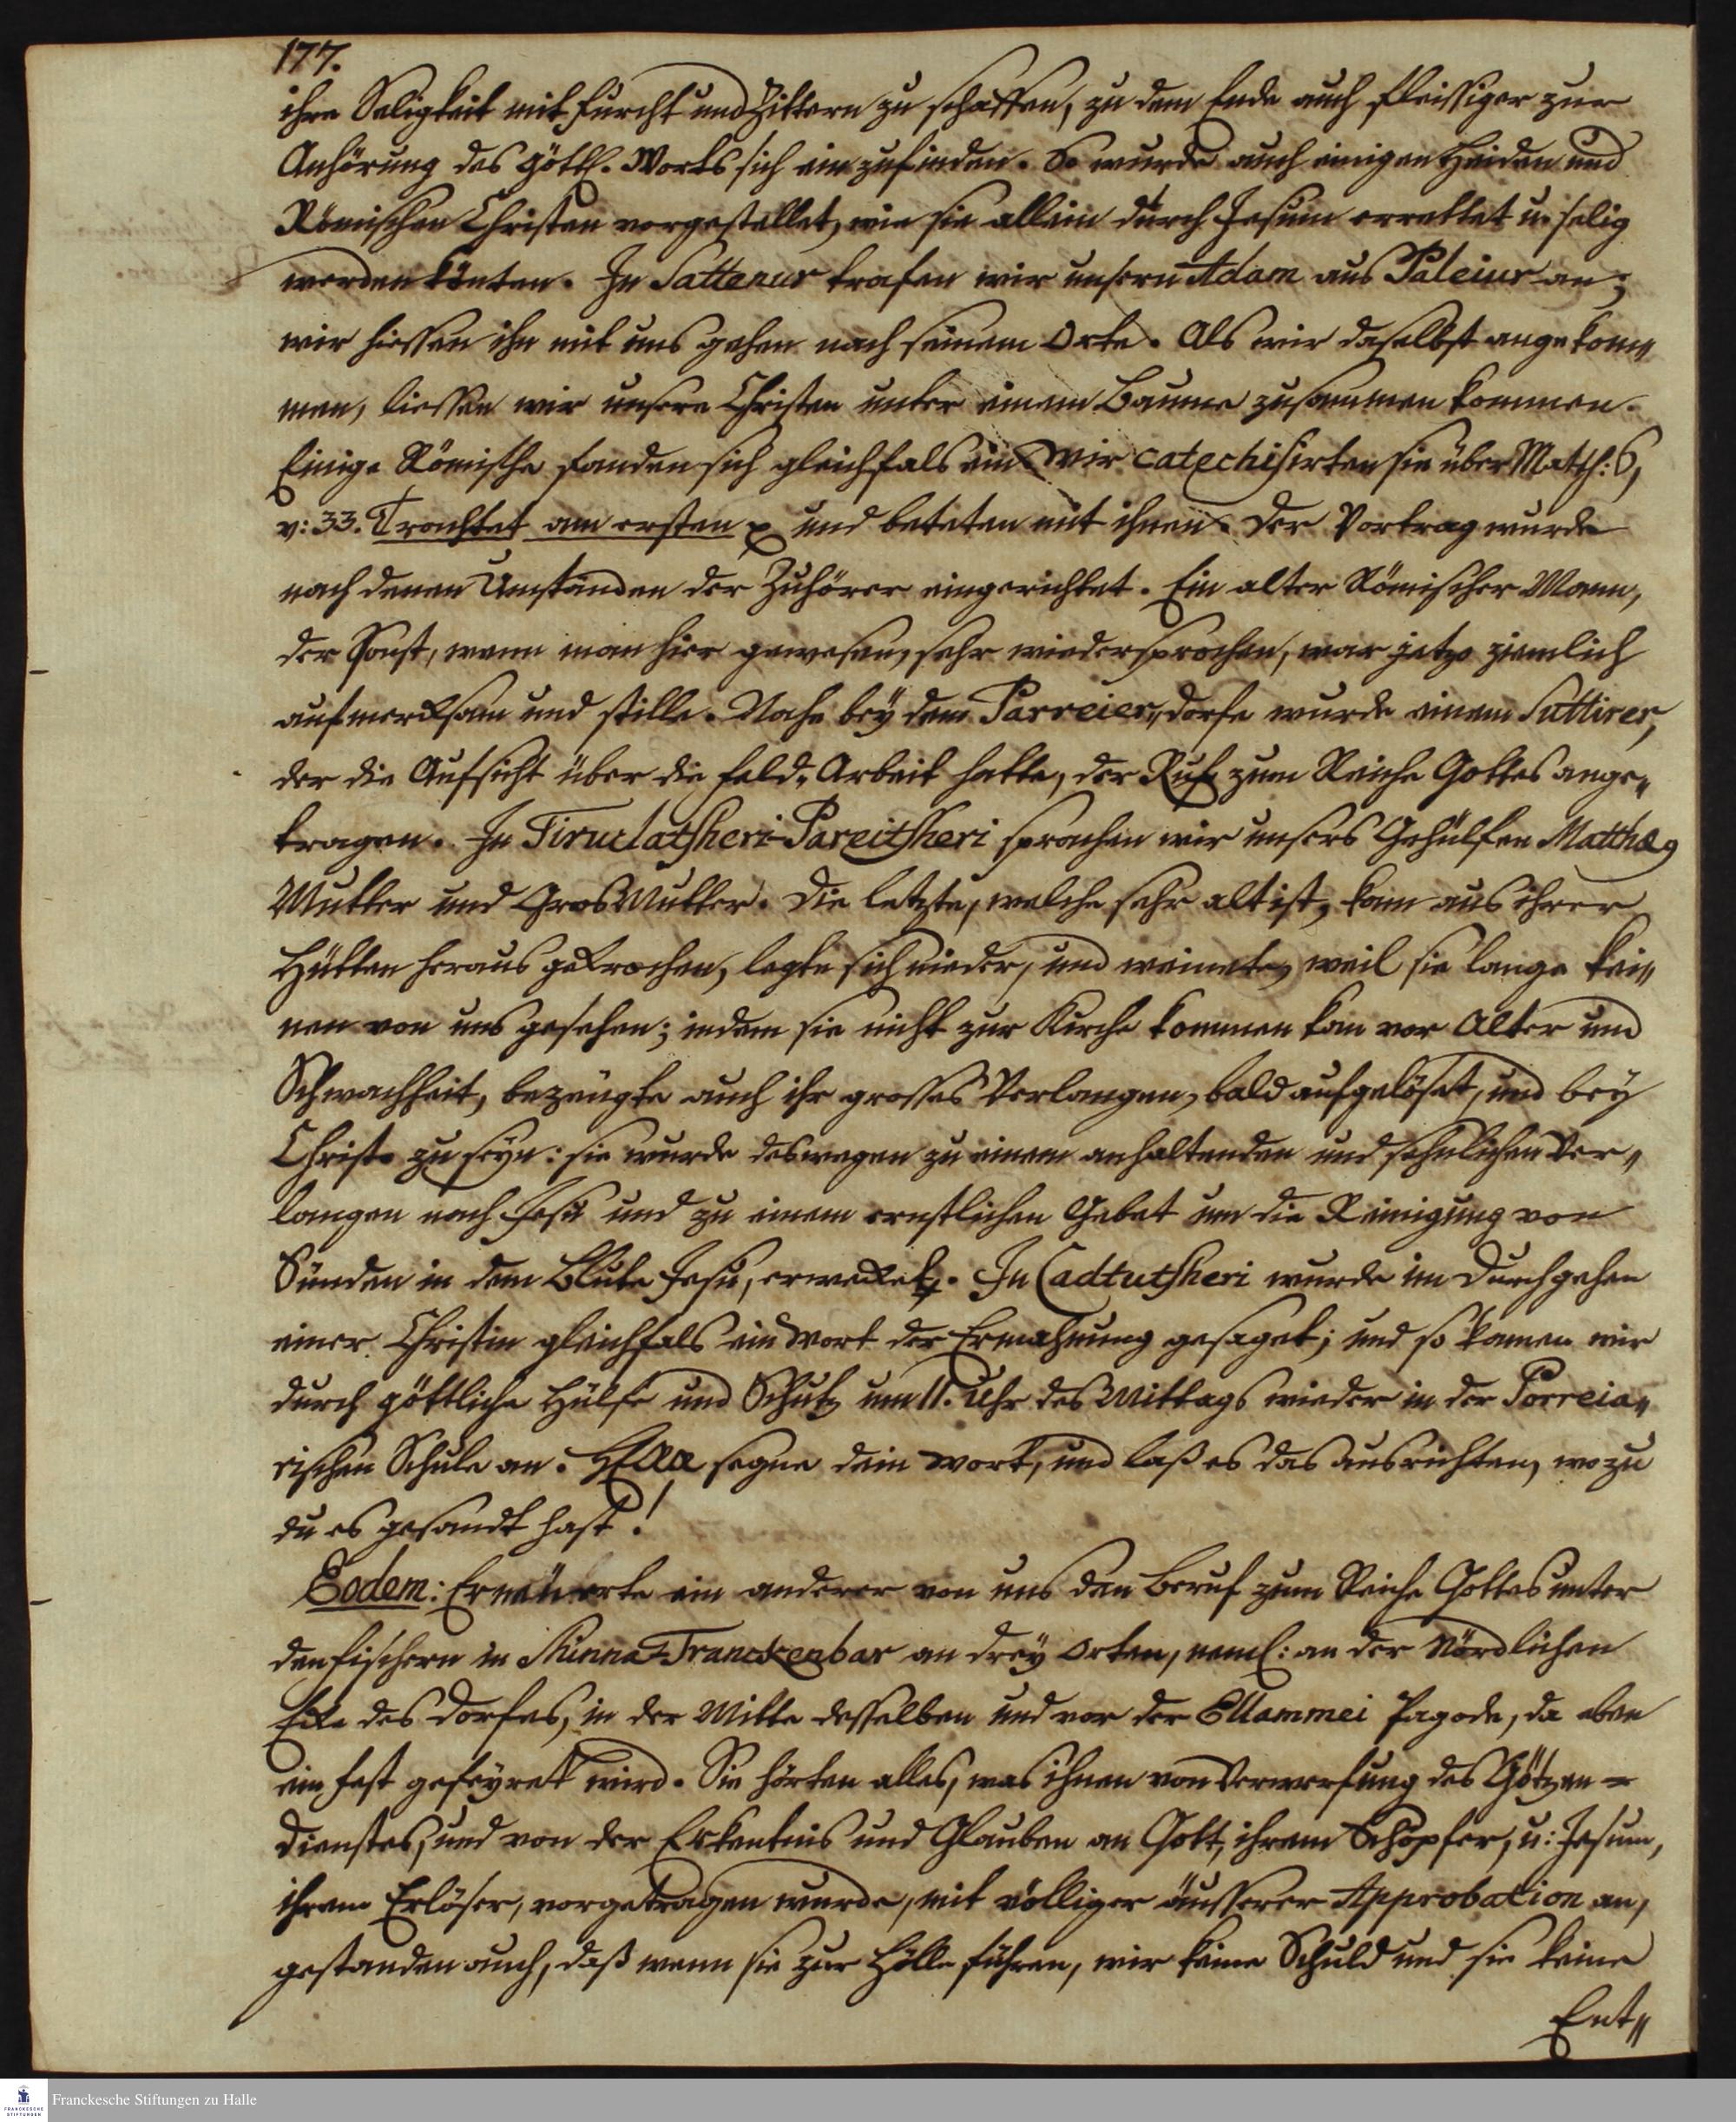 177.
ihre Seligkeit mit Furcht und Zittern zu schaffen, zu dem Ende auch fleissiger zur
Anhörung des göttl. Worts sich einzufinden. So wurde auch einigen Heiden und
Römischen Christen vorgestellet, wie sie allein durch Jesum errettet u. selig
werden könten. In Sattenur trafen wir unsern Adam aus Paleiur an;
wir hiessen ihn mit uns gehen nach seinem Orte. Als wir daselbst angekom„
men, liessen wir unsere Christen unter einem Baume zusammen kommen.
Einige Römische fanden sich gleichfals ein. Wir catechisirten sie über Matth: 6,
v: 33. Trachtet am ersten und beteten mit ihnen. Der Vortrag wurde
nach denen Umständen der Zuhörer eingerichtet. Ein alter Römischer Mann,
der sonst, wenn man hier gewesen, sehr wiedersprochen, war jetzo ziemlich
aufmercksam und stille. Nahe bey dem Parreier„dorfe wurde einem Suttirer,
der die Aufsicht über die Feld„Arbeit hatte, der Ruf zum Reiche Gottes ange„
tragen. In Tiruclatsheri-Pareitsheri sprachen wir unsers Gehülfen Matthæ
Mutter und GrosMutter. Die letzte, welche sehr alt ist, kam aus ihrer
Hütten heraus gekrochen, legte sich nieder, und weinete, weil sie lange kei„
nen von uns gesehen; indem sie nicht zur Kirche kommen kan vor Alter und
Schwachheit, bezeugte auch ihr grosses Verlangen, bald aufgelöset, und bey
Christo zu seyn: sie wurde deswegen zu einem anhaltenden und sehnlichen Ver„
langen nach Jesu und zu einem ernstlichen Gebet um die Reinigung von
Sünden in dem Blute Jesu, erwecket. In Cadtutsheri wurde im Durchgehen
einer Christin gleichfals ein Wort der Ermahnung gesaget; und so kamen wir
durch göttliche Hülfe und Schutz um 11. Uhr des Mittags wieder in der Porreia„
rischen Schule an. HErr segne dein Wort, und laß es das ausrichten, wozu
du es gesandt hast!
Eodem: Erneuerte ein anderer von uns den Beruf zum Reiche Gottes unter
den Fischern in Shinna-Tranckenbar an drey Orten, neml: an der Nördlichen
Ecke des Dorfes, in der Mitte desselben und vor der Ellammei Pagode, da eben
ein Fest gefeyret wird. Sie hörten alles, was ihnen von Verwerfung des Götzen=
dienstes, und von der Erkentnis und Glauben an Gott, ihrem Schöpfer, u: Jesum,
ihrem Erlöser, vorgetragen wurde, mit völliger äusserer Approbation an,
gestanden auch, daß wenn sie zur Hölle führen, wir keine Schuld und sie keine
Ent„
Franckesche Stiftungen zu Halle
FRANCKESCHE
STIFTUNGEN